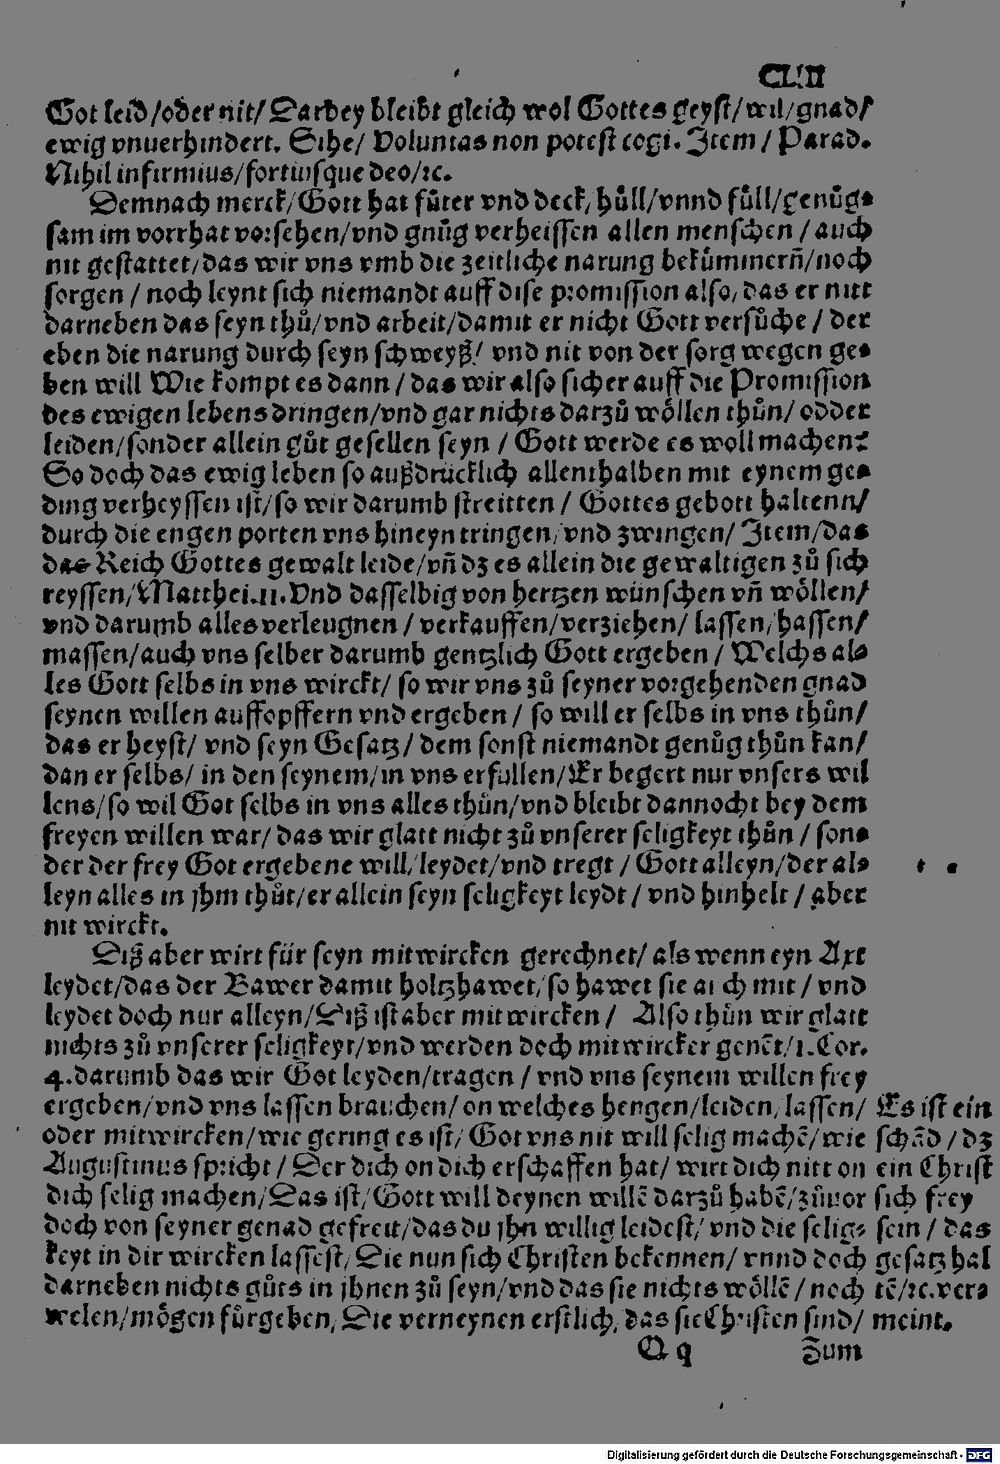 CLIII
Got leid/oder nit/ Darbey bleibt gleich wol Gottes geyst/wil/gnad/
ewig vnuerhindert. Sihe/ Voluntas non potest cogi. Item / Parad.
Nihil infirmius/fortiusque deo/ꝛc.
Demnach merck/Gott hat fůter vnd deck, hůll/vnnd fůll/genůg⸗
sam im vorrhat vorsehen/vnd gnůg verheissen allen menschen / auch
nit gestattet/das wir vns vmb die zeitliche narung bekůmmern̄/noch
sorgen / noch leynt sich niemandt auff dise promission also, das er nitt
darneben das seyn thů/vnd arbeit/damit er nicht Gott versůche / der
eben die narung durch seyn schweyß/ vnd nit von der sorg wegen ge⸗
ben will Wie kompt es dann / das wir also sicher auff die Promission
des ewigen lebens dringen/vnd gar nichts darzů wöllen thůn/ odder
leiden/sonder allein gůt gesellen seyn / Gott werde es woll machen?
So doch das ewig leben so außdrücklich allenthalben mit eynem ge⸗
ding verheyssen ist/so wir darumb streitten / Gottes gebott haltenn/
durch die engen porten vns hineyn tringen, vnd zwingen/ Item/das
das Reich Gottes gewalt leide/vn̄ dz es allein die gewaltigen zů sich
reyssen/Matthei.11.Vnd dasselbig von hertzen wünschen vn̄ wöllen/
vnd darumb alles verleugnen / verkauffen/verziehen/ lassen/hassen/
massen/auch vns selber darumb gentzlich Gott ergeben / Welchs al⸗
les Gott selbs in vns wirckt/ so wir vns zů seyner vorgehenden gnad
seynen willen auffopffern vnd ergeben / so will er selbs in vns thůn/
das er heyst/ vnd seyn Gesatz/ dem sonst niemandt genůg thůn kan/
dan er selbs/ in den seynem/in vns erfullen/Er begert nur vnsers wil
lens/so wil Got selbs in vns alles thůn/vnd bleibt dannocht bey dem
freyen willen war/ das wir glatt nicht zů vnserer seligkeyt thůn / son⸗
der der frey Got ergebene will/leydet/vnd tregt / Gott alleyn/der al⸗
leyn alles in jhm thůt/er allein seyn seligkeyt leydt / vnd hinhelt / aber
nit wirckt.
Diß aber wirt für seyn mitwircken gerechnet/ als wenn eyn Axt
leydet/das der Bawer damit holtzhawet/so hawet sie auch mit / vnd
leydet doch nur alleyn/Diß ist aber mitwircken / Also thůn wir glatt
nichts zů vnserer seligkeyt/vnd werden doch mitwircker genēt/1.Cor.
4.darumb das wir Got leyden/tragen / vnd vns seynem willen frey
ergeben/vnd vns lassen brauchen/ on welches hengen/leiden/lassen/
oder mitwircken/wie gering es ist/ Got vns nit will selig machē/wie
Augustinus spricht / Der dich on dich erschaffen hat/ wirt dich nitt on
dich selig machen/Das ist/Gott will deynen willē darzů habē/zůuor
doch von seyner genad gefreit/das du jhn willig leidest/ vnd die selig⸗
keyt in dir wircken lassest/Die nun sich Christen bekennen/ vnnd doch
darneben nichts gůts in jhnen zů seyn/vnd das sie nichts wöllē / noch
welen/mögen fürgeben, Die verneynen erstlich, das sie Christen sind/
Es ist ein
schād / dz
ein Christ
sich frey
sein / das
gesatz hal
tē/ꝛc.ver⸗
meint.
Q q
Zum
Digitalisierung gefördert durch die Deutsche Forschungsgemeinschaft - DFG